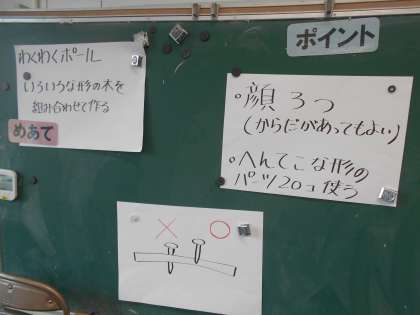 わくわくポール
いろいろな形の木を
組み合わせて作る
めあて
ポイント
。顔3つ
(からだがあってもよい)
。へんてこな形の
パーツ20コ使う
× ○